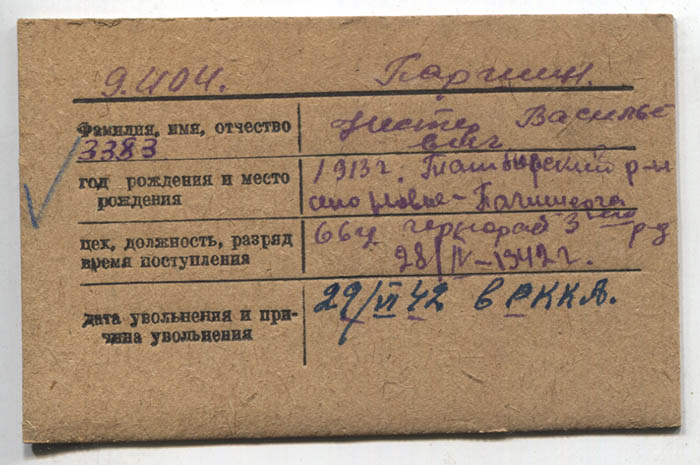 9.404. Паршин.
Фамилия, имя, отчество
3383
Нестер Василье
вич
год рождения и место
рождения
1913 г. р-н
село Новые-
цех, должность, разряд
время поступления
66 ц чернораб 3 его р-д
28/IV-1942 г.
дата увольнения и при-
чина увольнения
29/VI 42 в РККА.